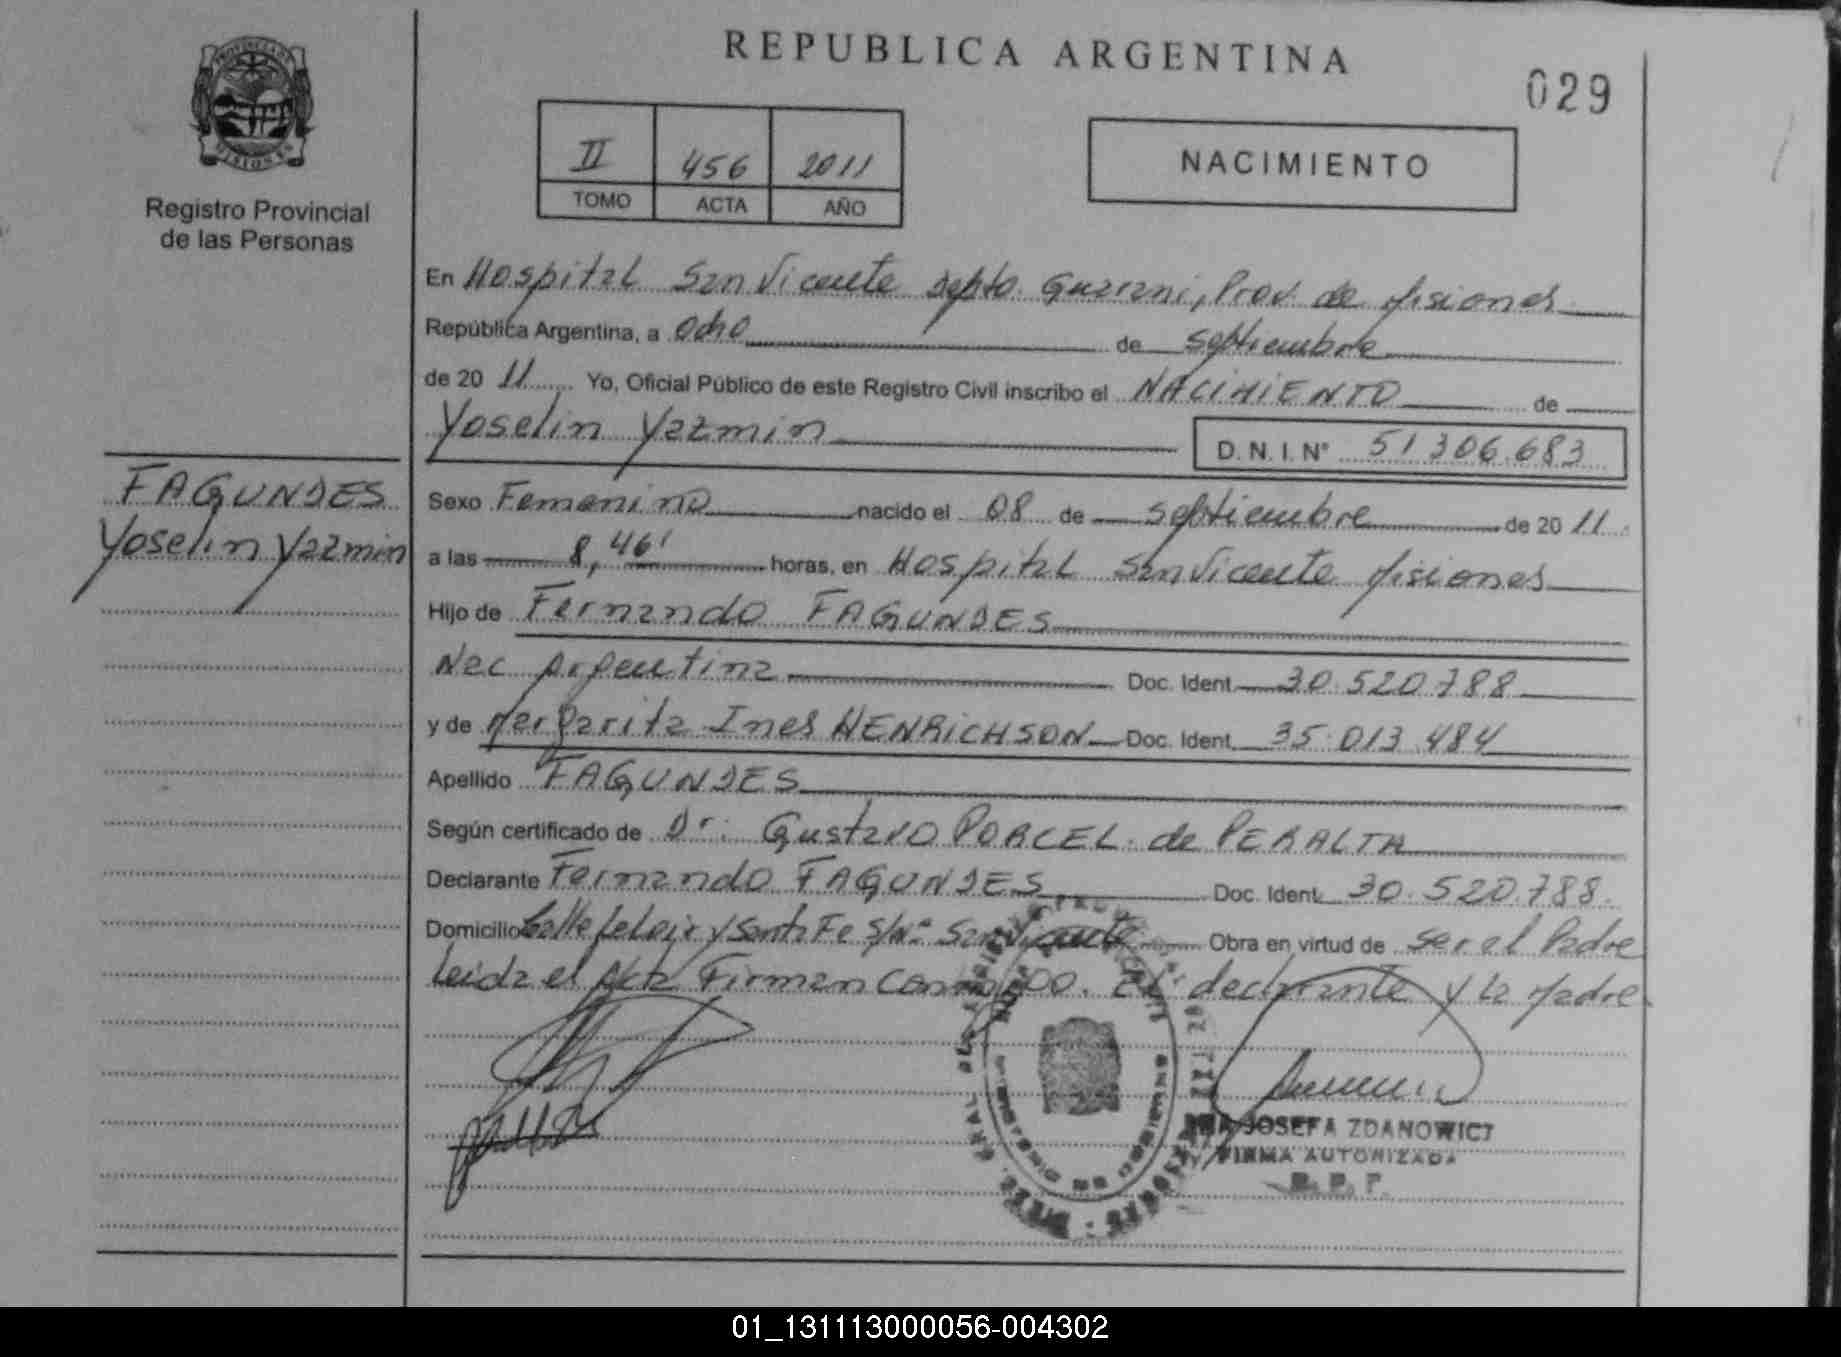 REPUBLICA ARGENTINA
029
PROVINCIA DE
MISIONES
Registro Provincial
de las Personas
II 456 2011
TOMO ACTA AÑO
NACIMIENTO
En Hospital San Vicente Depto. Guarani, Prov. de Misiones
República Argentina, a ocho de septiembre
de 20 11 Yo, Oficial Público de este Registro Civil inscribo el NACIMIENTO de
Yoselin Yazmin D. N. I. N° 51 306.683
FAGUNDES
Yoselin Yazmin
Sexo Femenino nacido el 08 de septiembre de 20 11
a las 8,46' horas, en Hospital San Vicente Misiones
Hijo de Fernando FAGUNDES
Nac Argentina Doc. Ident. 30.520.788
y de Margarita Ines HENRICHSON Doc. Ident. 35.013.484
Apellido FAGUNDES
Según certificado de Dr. Gustavo PORCEL de PERALTA
Declarante Fernando FAGUNDES Doc. Ident. 30.520.788.
Domicilio Calle y Santa Fe S/N° San Vicente Obra en virtud de ser el Padre
Leida el Acta Firman Conmigo. El declarante y la Madre
JOSEFA ZDANOWICZ
FIRMA AUTORIZADA
R. P. P.
01_131113000056-004302